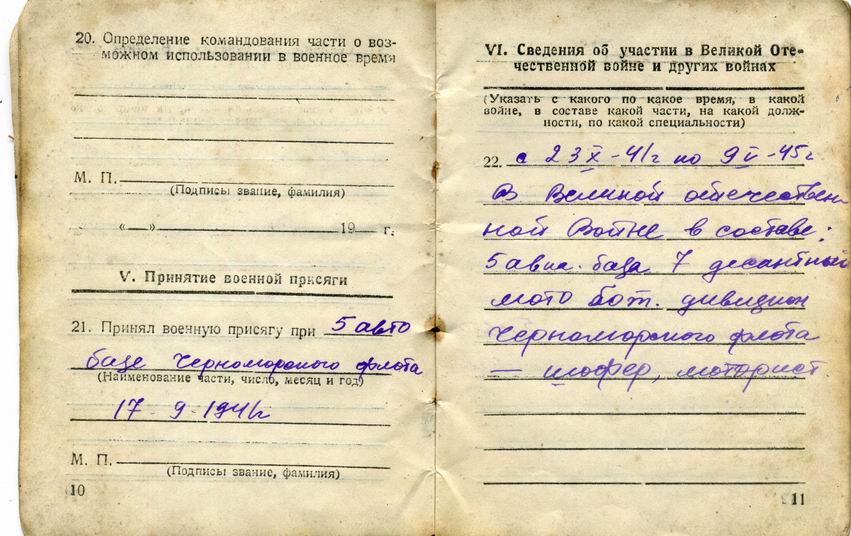 20. Определение командования части о воз-
можном использовании в военное время
М. П.
(Подписы звание, фамилия)
«  » 19 г.
V. Принятие военной присяги
21. Принял военную присягу при 5 авто
базе Черноморского флота
(Наименование части, число, месяц и год)
17 - 9 - 1941г
М. П.
(Подписы звание, фамилия)
10
VI. Сведения об участии в Великой Оте-
чественной войне и других войнах
(Указать с какого по какое время, в какой
войне, в составе какой части, на какой долж-
ности, по какой специальности)
22. с 23 X - 41г по 9 V - 45г.
В Великой отечествен
ной Войне в составе:
5 авто. база 7 десантный
мото бот. дивизион
Черноморского флота
— шофер, моторист.
11